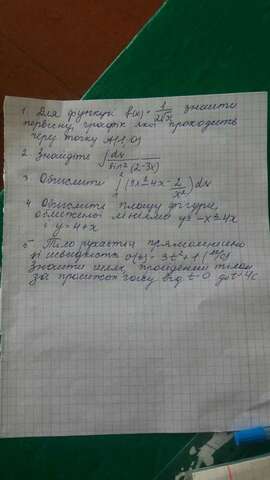 1. Для функції f(x) = 1/(2√x) знайти
первісну, графік якої проходить
через точку A(1;0)
2. Знайдіть ∫ dx / sin²(2-3x)
3 Обчислити ∫ (9x² - 4x - 2/x²) dx
4 Обчислити площу фігури,
обмеженої лініями y = -x² - 4x
і y = 4+x
5 Тіло рухається прямолінійно
зі швидкістю v(t) = 3t²+1 (м/с)
Знайти шлях, пройдений тілом
за проміжок часу від t=0 до t=4c